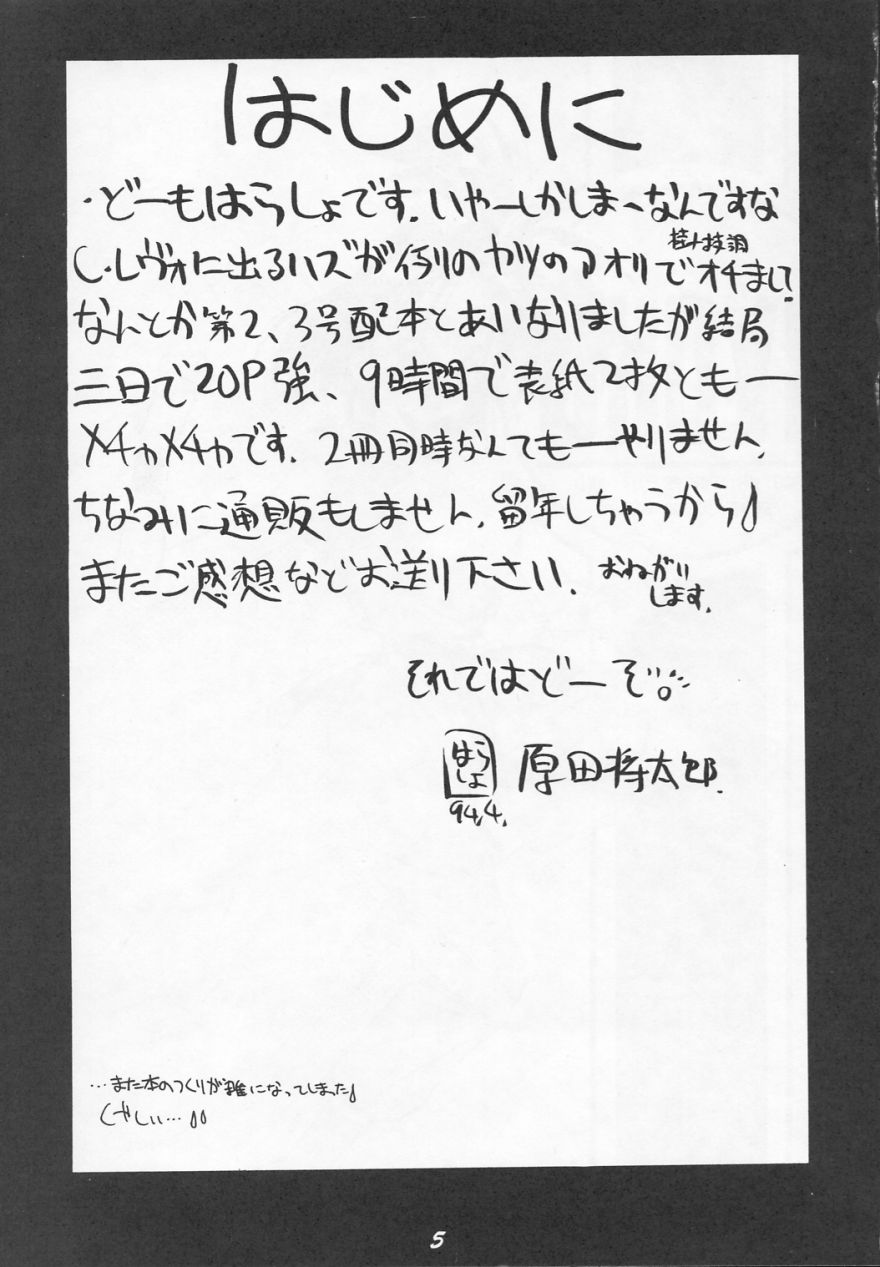 はじめに
・どーもはらしょです.いやーしかしまーなんですな
C・レヴォに出るハズが例のヤツのアオリでオチまして.
なんとか第2、3号配本とあいなりましたが結局
三日で20P強、9時間で表紙2枚ともー
メチャメチャです.2冊同時なんてもーやりません.
ちなみに通販もしません.留年しちゃうから♪
またご感想などお送り下さい.おねがい
します.
それではどーぞ
はらしょ 原田将太郎.
94,4,
…また本のつくりが雑になってしまった♪
くやしい…♪♪
5